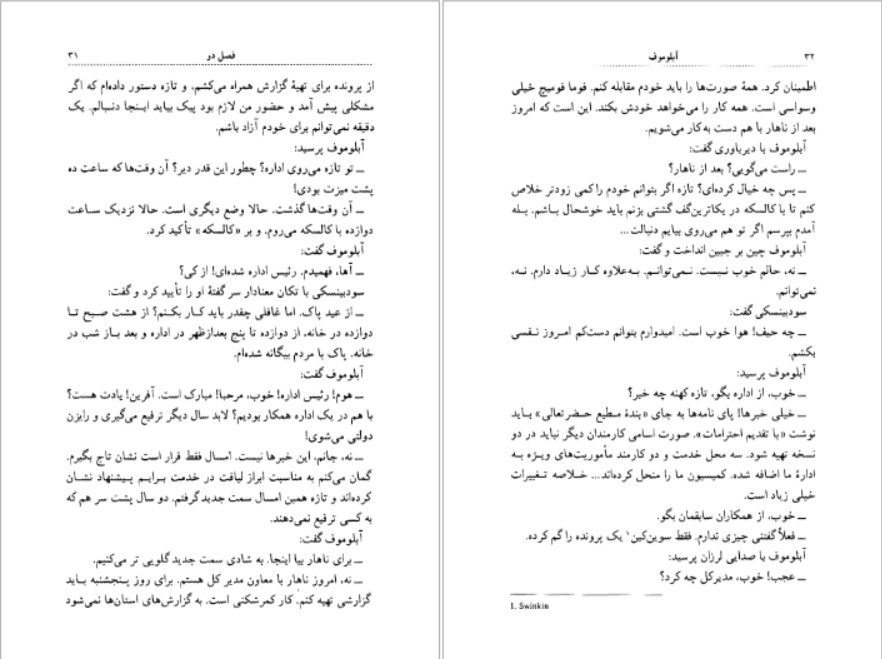 ۳۱ فصل دو
از پرونده برای تهیهٔ گزارش همراه می‌کشم، و تازه دستور داده‌ام که اگر
مشکلی پیش آمد و حضور من لازم بود پیک بیاید اینجا دنبالم. یک
دقیقه نمی‌توانم برای خودم آزاد باشم.
آبلوموف پرسید:
ــ تو تازه می‌روی اداره؟ چطور این قدر دیر؟ آن وقت‌ها که ساعت ده
پشت میزت بودی!
ــ آن وقت‌ها گذشت. حالا وضع دیگری است. حالا نزدیک ساعت
دوازده با کالسکه می‌روم. و بر «کالسکه» تأکید کرد.
آبلوموف گفت:
ــ آها، فهمیدم. رئیس اداره شده‌ای! از کی؟
سودبینسکی با تکان معنادار سر گفتهٔ او را تأیید کرد و گفت:
ــ از عید پاک. اما غافلی چقدر باید کار بکنم؟ از هشت صبح تا
دوازده در خانه، از دوازده تا پنج بعدازظهر در اداره و بعد باز شب در
خانه. پاک با مردم بیگانه شده‌ام.
آبلوموف گفت:
ــ هوم! رئیس اداره! خوب، مرحبا! مبارک است. آفرین! یادت هست؟
با هم در یک اداره همکار بودیم؟ لابد سال دیگر ترفیع می‌گیری و رایزن
دولتی می‌شوی!
ــ نه، جانم، این خبرها نیست. امسال فقط قرار است نشان تاج بگیرم.
گمان می‌کنم به مناسبت ابراز لیاقت در خدمت برایم پیشنهاد نشان
کرده‌اند و تازه همین امسال سمت جدید گرفتم. دو سال پشت سر هم که
به کسی ترفیع نمی‌دهند.
آبلوموف گفت:
ــ برای ناهار بیا اینجا. به شادی سمت جدید گلویی تر می‌کنیم.
ــ نه، امروز ناهار با معاون مدیر کل هستم. برای روز پنجشنبه باید
گزارشی تهیه کنم. کار کمرشکنی است. به گزارش‌های استان‌ها نمی‌شود
۳۲ آبلوموف
اطمینان کرد. همهٔ صورت‌ها را باید خودم مقابله کنم. فوما فومیچ خیلی
وسواسی است. همه کار را می‌خواهد خودش بکند. این است که امروز
بعد از ناهار با هم دست به‌کار می‌شویم.
آبلوموف با دیرباوری گفت:
ــ راست می‌گویی؟ بعد از ناهار؟
ــ پس چه خیال کرده‌ای؟ تازه اگر بتوانم خودم را کمی زودتر خلاص
کنم تا با کالسکه در یکاترین‌گف گشتی بزنم باید خوشحال باشم. بله
آمدم بپرسم اگر تو هم می‌روی بیایم دنبالت...
آبلوموف چین بر جبین انداخت و گفت:
ــ نه، حالم خوب نیست. نمی‌توانم. به‌علاوه کار زیاد دارم. نه،
نمی‌توانم.
سودبینسکی گفت:
ــ چه حیف! هوا خوب است. امیدوارم بتوانم دست‌کم امروز نفسی
بکشم.
آبلوموف پرسید:
ــ خوب، از اداره بگو، تازه کهنه چه خبر؟
ــ خیلی خبرها! پای نامه‌ها به جای «بندهٔ مطیع حضرتعالی» باید
نوشت «با تقدیم احترامات». صورت اسامی کارمندان دیگر نباید در دو
نسخه تهیه شود. سه محل خدمت و دو کارمند مأموریت‌های ویژه به
ادارهٔ ما اضافه شده. کمیسیون ما را منحل کرده‌اند... خلاصه تغییرات
خیلی زیاد است.
ــ خوب، از همکاران سابقمان بگو.
ــ فعلاً گفتنی چیزی ندارم. فقط سوین‌کین۱ یک پرونده را گم کرده.
آبلوموف با صدایی لرزان پرسید:
ــ عجب! خوب، مدیرکل چه کرد؟
1. Swinkin